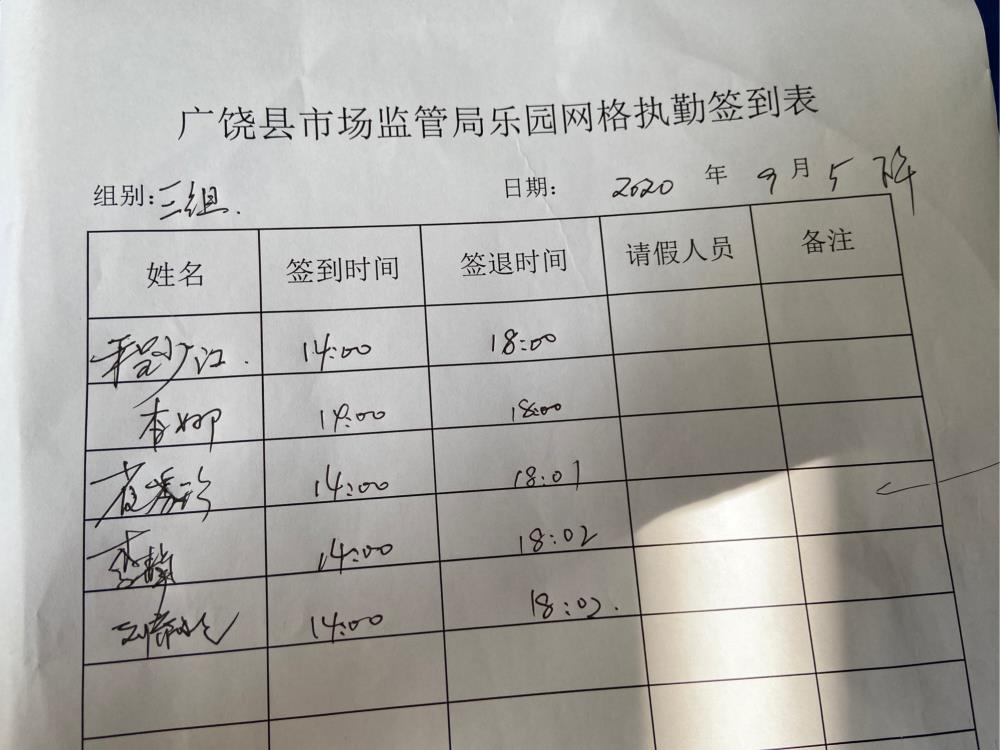 广饶县市场监管局乐园网格执勤签到表
组别:三组. 日期: 2020 年 9 月 5
姓名 签到时间 签退时间 请假人员 备注
程少江. 14:00 18:00
李娜 14:00 18:00
14:00 18:01
李静 14:00 18:02
14:00 18:02.